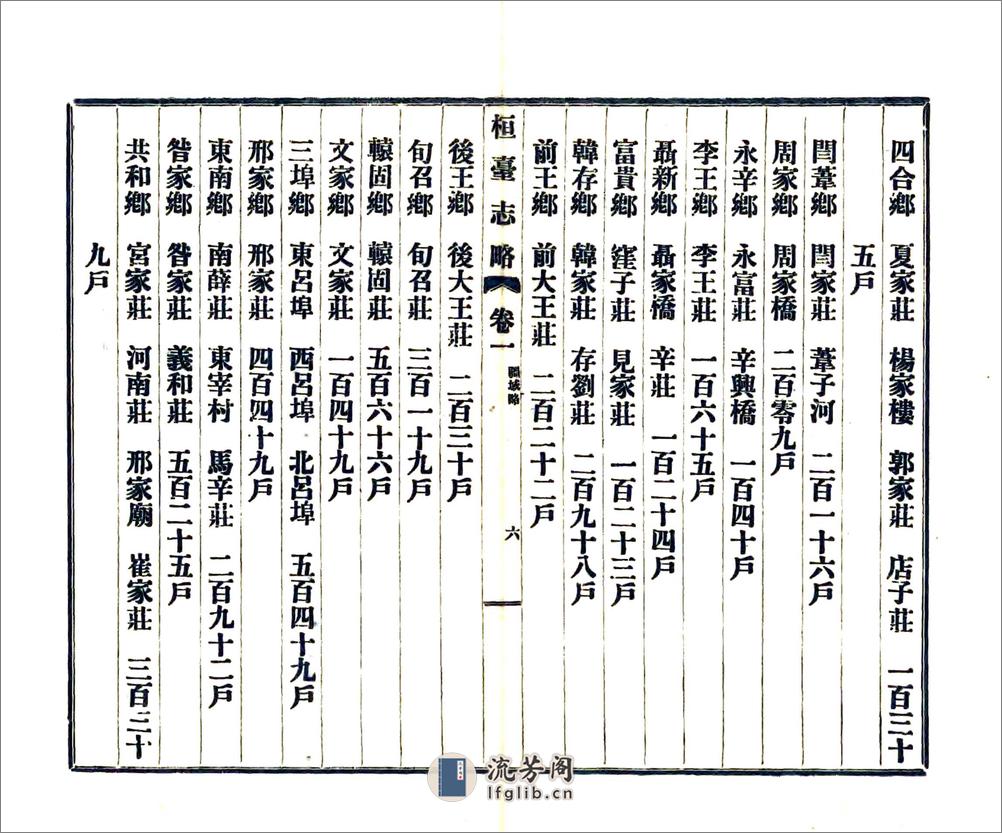 四合鄉 夏家莊 楊家樓 郭家莊 店子莊 一百三十
五戶
閆葦鄉 閆家莊 葦子河 二百一十六戶
周家鄉 周家橋 二百零九戶
永辛鄉 永富莊 辛興橋 一百四十戶
李王鄉 李王莊 一百六十五戶
聶新鄉 聶家橋 辛莊 一百二十四戶
富貴鄉 窪子莊 見家莊 一百二十三戶
韓存鄉 韓家莊 存劉莊 二百九十八戶
前王鄉 前大王莊 二百二十二戶
桓臺志略 卷一 疆域略 六
後王鄉 後大王莊 二百三十戶
旬召鄉 旬召莊 三百一十九戶
轅固鄉 轅固莊 五百六十六戶
文家鄉 文家莊 一百四十九戶
三埠鄉 東呂埠 西呂埠 北呂埠 五百四十九戶
邢家鄉 邢家莊 四百四十九戶
東南鄉 南薛莊 東宰村 馬辛莊 二百九十二戶
昝家鄉 昝家莊 義和莊 五百二十五戶
共和鄉 宮家莊 河南莊 邢家廟 崔家莊 三百三十
九戶
流芳阁
lfglib.cn